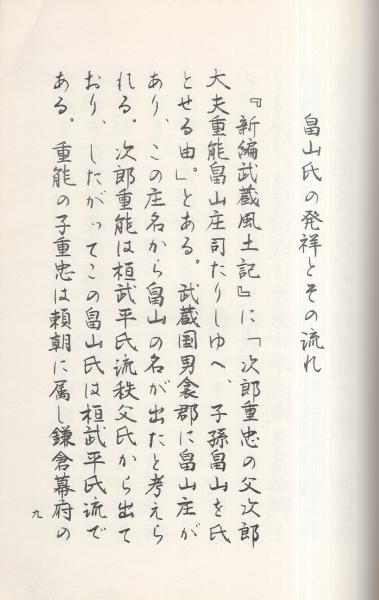 畠山氏の発祥とその流れ
『新編武蔵風土記』に「次郎重忠の父次郎
大夫重能畠山庄司たりしゆへ、子孫畠山を氏
とせる由。」とある。武蔵国男衾郡に畠山庄が
あり、この庄名から畠山の名が出たと考えら
れる。次郎重能は桓武平氏流秩父氏から出て
おり、したがってこの畠山氏は桓武平氏流で
ある。重能の子重忠は頼朝に属し鎌倉幕府の
九